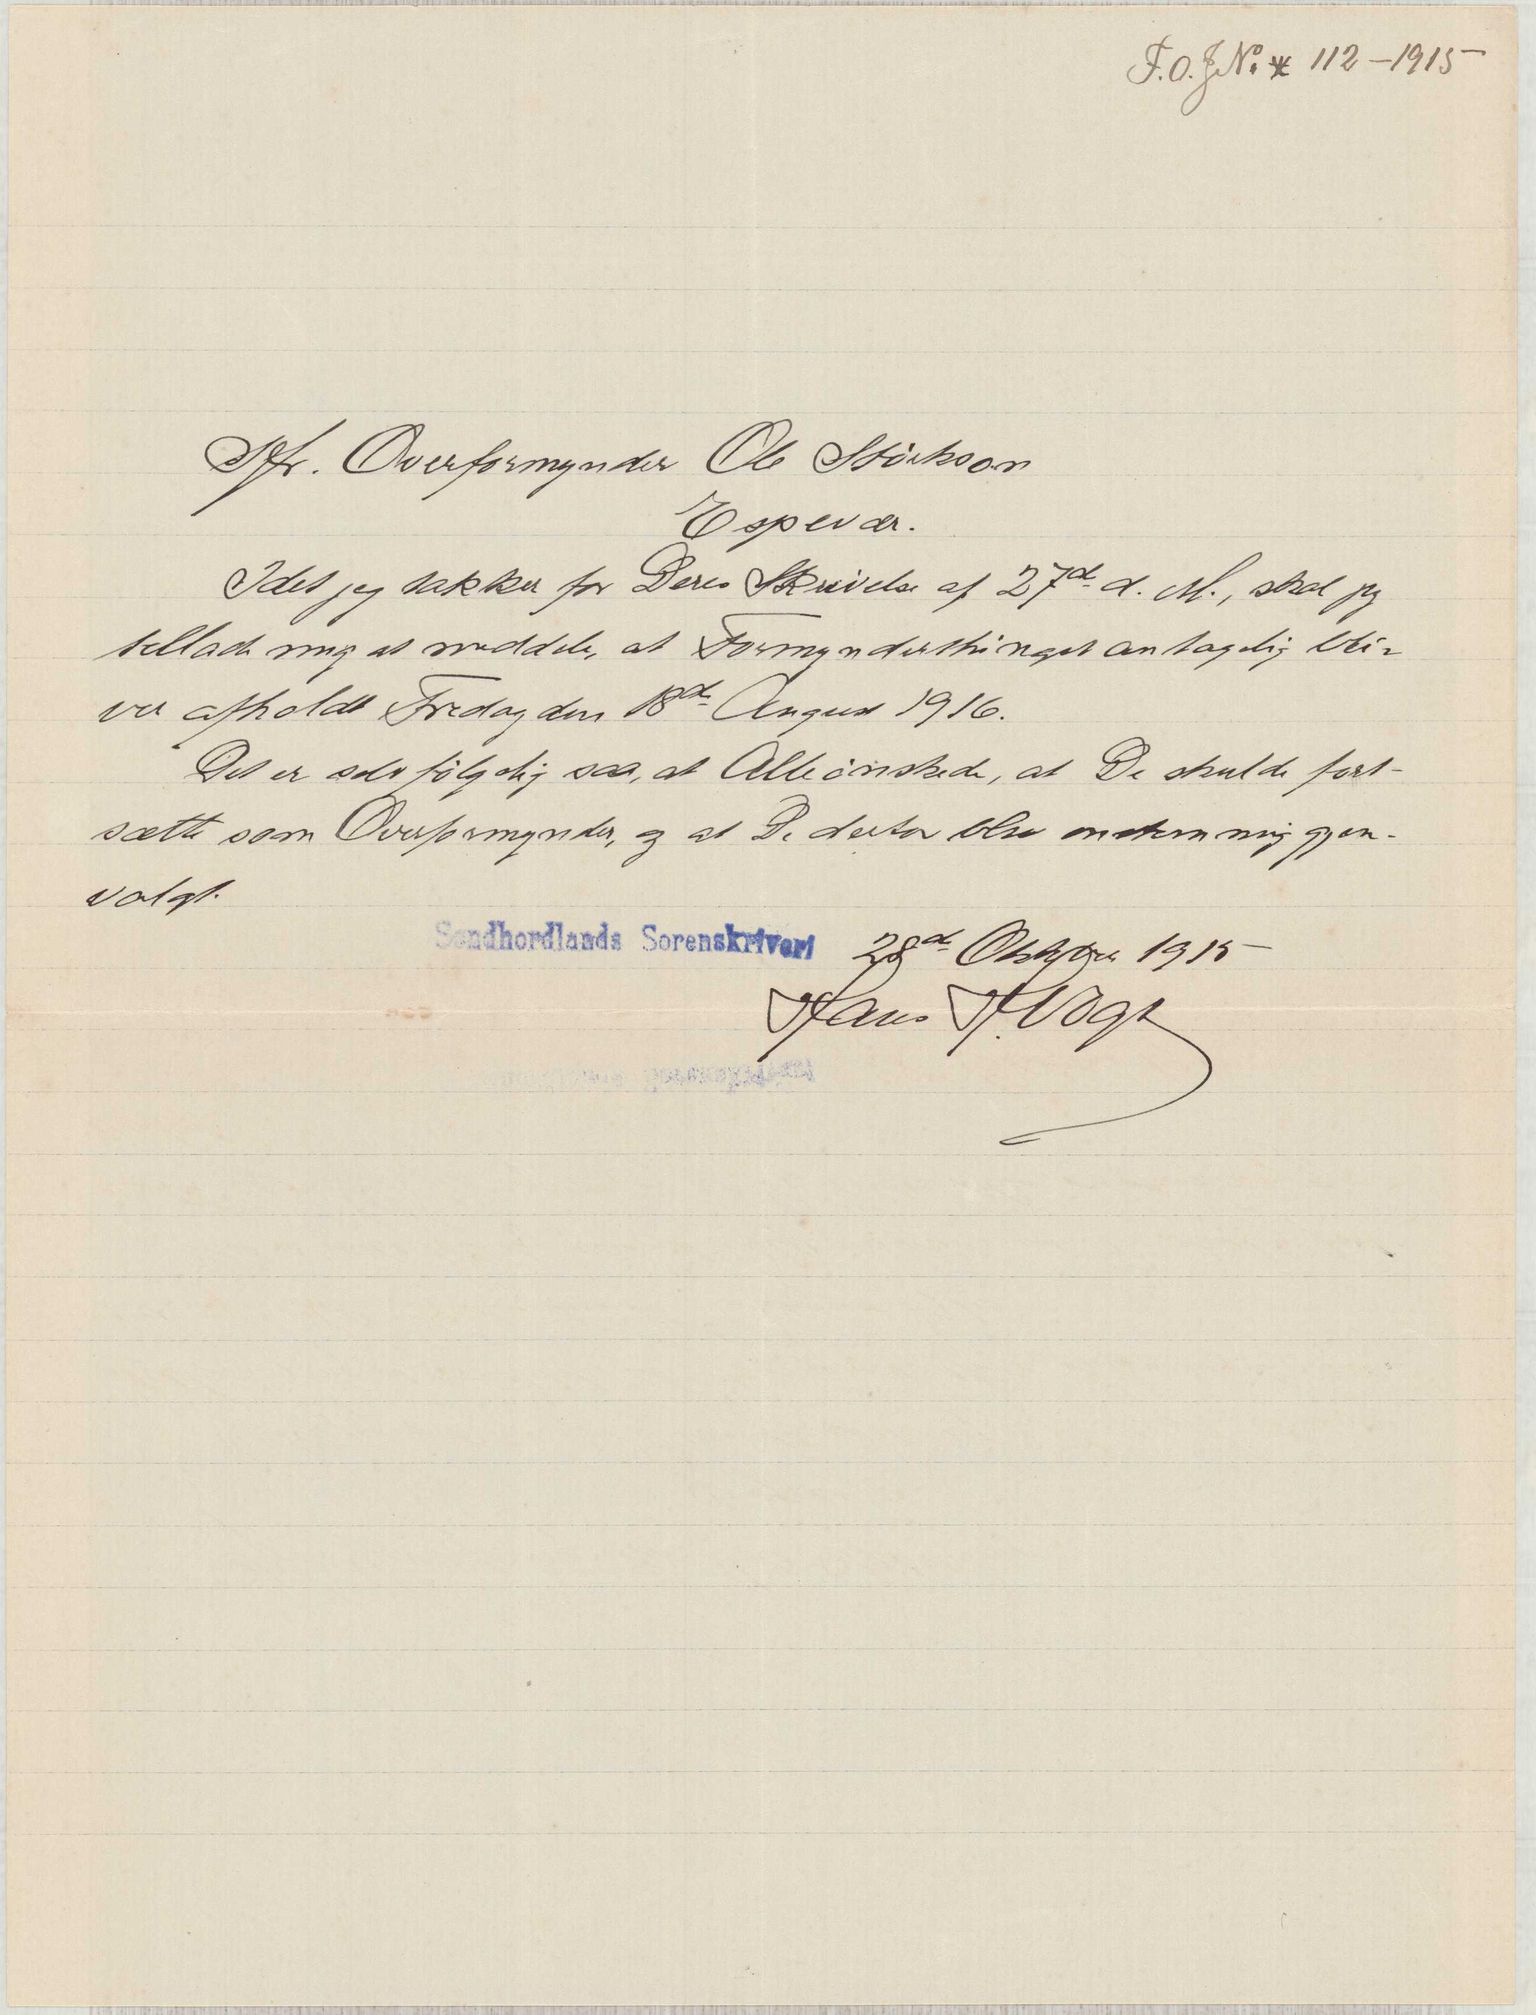 F. O. J. No. 112 – 1915
Hr. Overformynder Ole Störkson
Espevær.
Idet jeg takker for Deres Skrivelse af 27de d. M., skal jeg
tillade mig at meddele, at Formynderthinget antagelig bli-
ver afholdt Fredag den 18de August 1916.
Det er selvfølgelig saa, at Alle ønskede, at De skulde fort-
sætte som Overformynder, og at De derfor blev enstemmig gjen-
valgt.
Søndhordlands Sorenskriveri 28de Oktober 1915
Hans H. Vogt